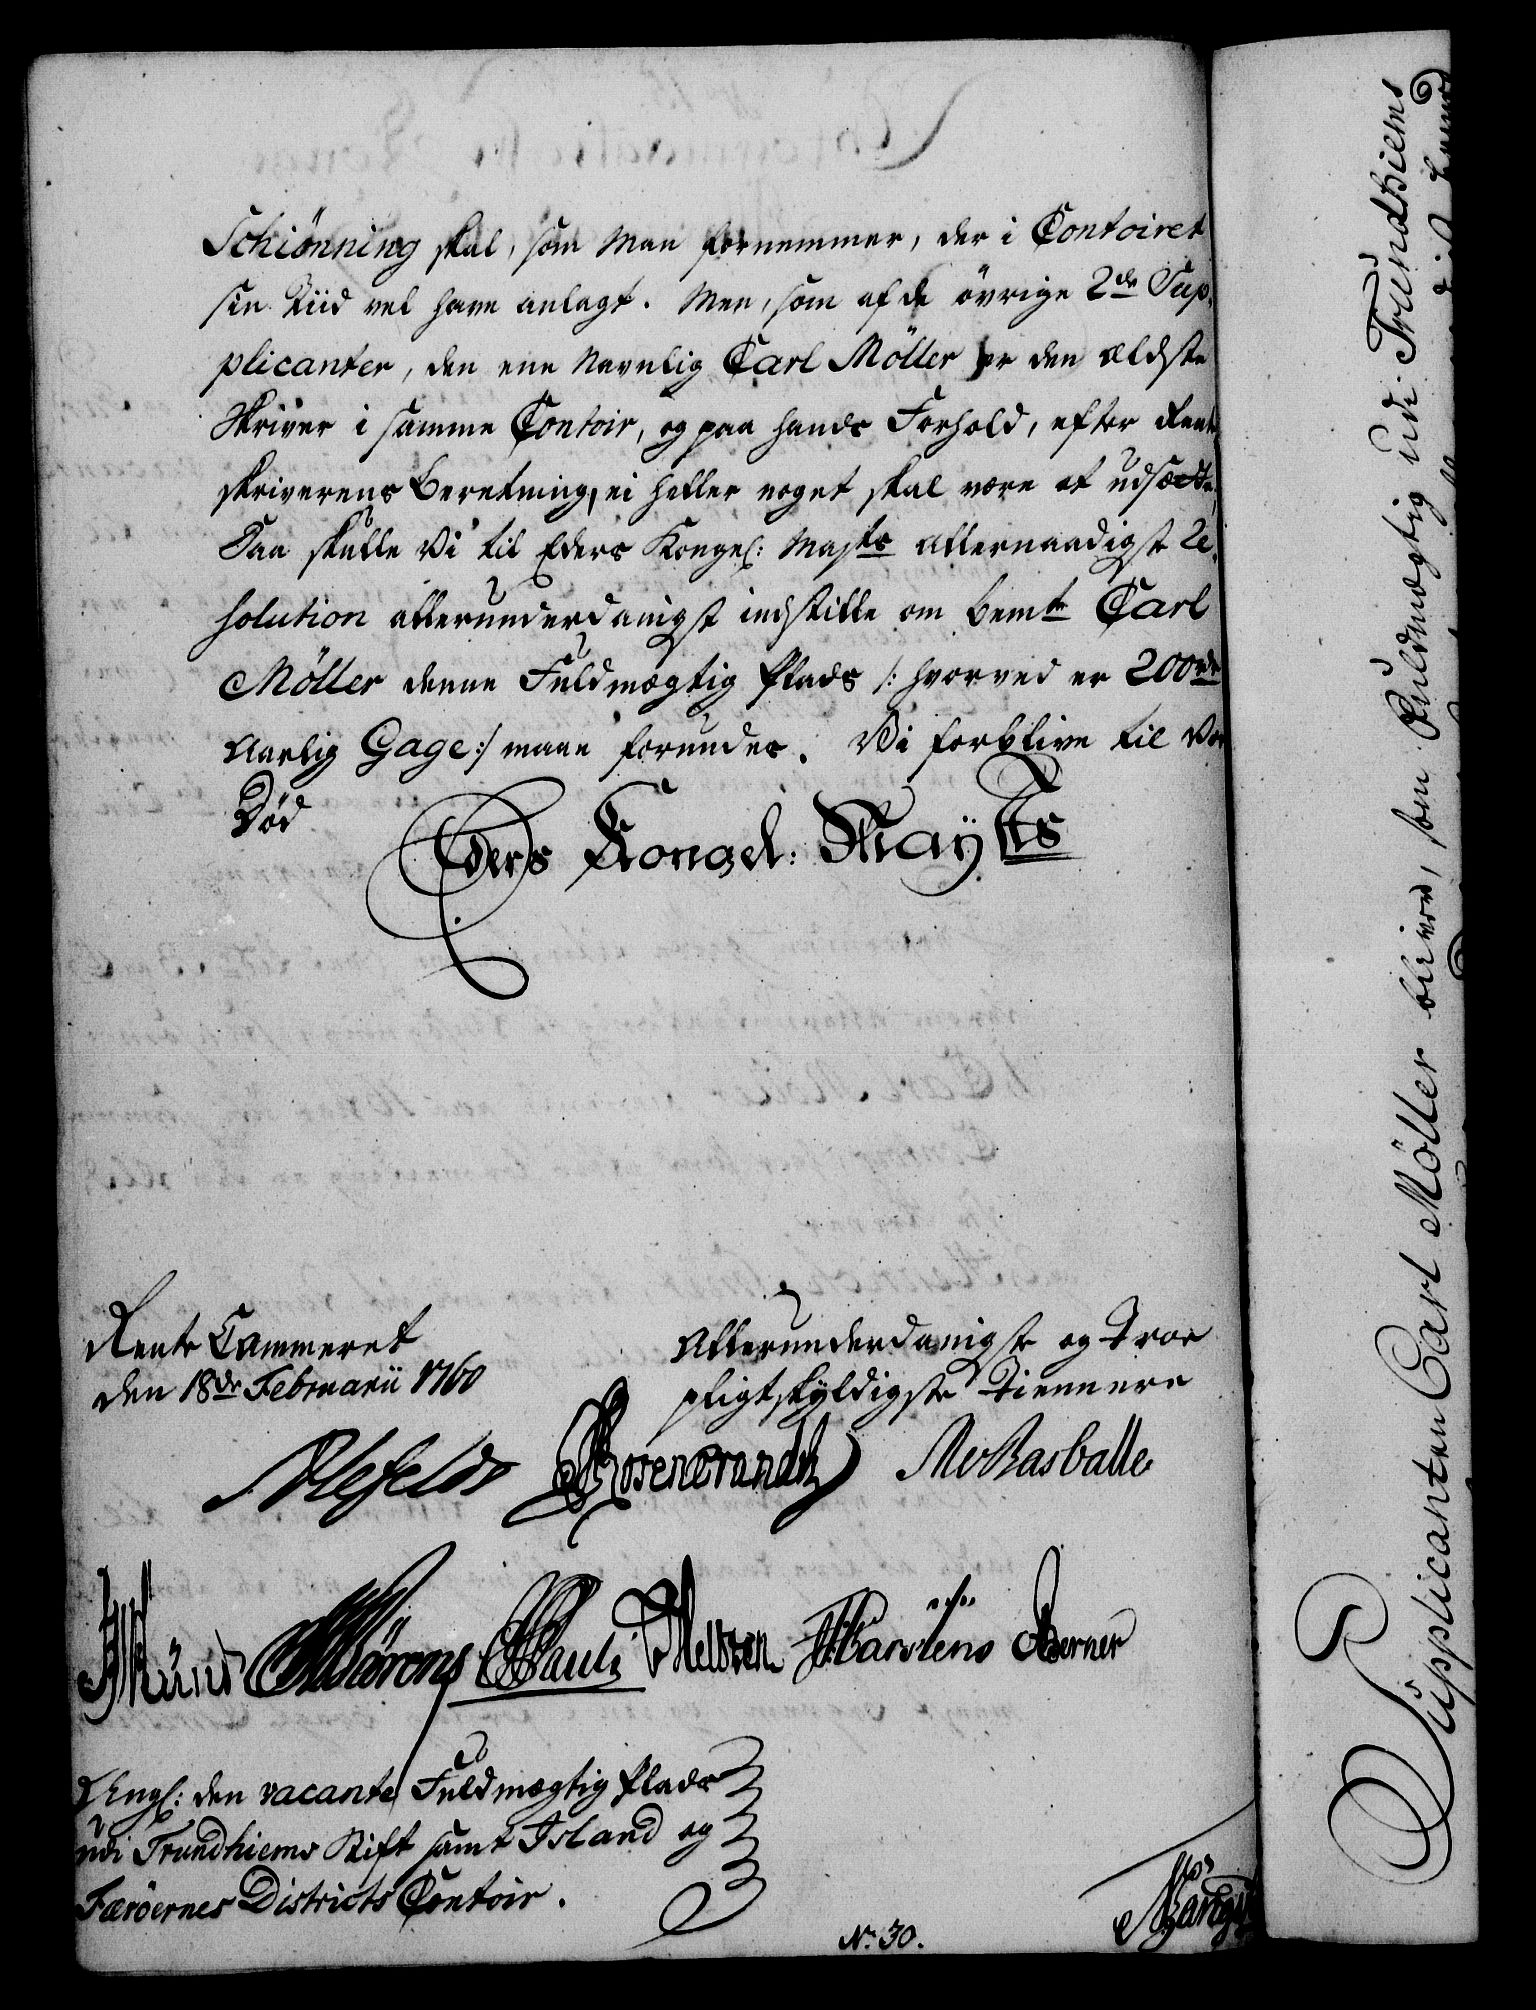 Schiønning skal, som Man fornemmer, der i Contoiret
sin Tiid vel have anlagt. Men, som af de øvrige 2de Sup-
plicanter, den ene Navnlig Carl Möller er den ældste
Skriver i samme Contoir, og paa hands Forhold, efter Rente
skriverens Beretning, ei heller noget skal være at udsætte,
Saa skulle Vi til Eders Kongel: Majts allernaadigst Re-
solution allerunderdanigst indstille om bemte Carl
Möller denne Fuldmægtig Plads /: hvorved er 200 rdr
Aarlig Gage :/ maae forundes. Vi forblive til Vor
Död
Eders Kongel: Mayts
Rente Cammeret
den 18de Februarii 1760
Allerunderdanigste og Troe
pligtskyldigste Tiennere
Ahlefeldt Rosencrandtz Rasballe
Pauli Karstens Berner
Ang: den vacante Fuldmægtig Plads
udi Trundhiems Stift samt Island og
Færöernes Districts Contoir.
No. 30.
Supplicanten Carl Möller bliver, som Fuldmægtig udi Trundhiems